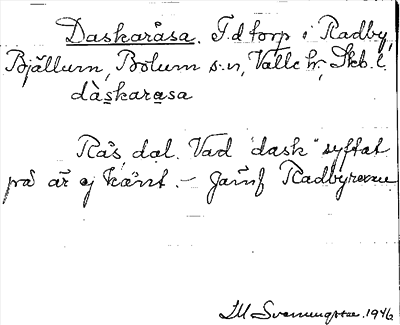 Daskaråsa. F.d torp i Radby,
Bjällum, Bolum s:n, Valle hr, Skb. l.
dàskarasa
Rås, dal. Vad "dask" syftat
på är ej känt. - Jämf Radbyrorna
IM Svenungsson. 1946